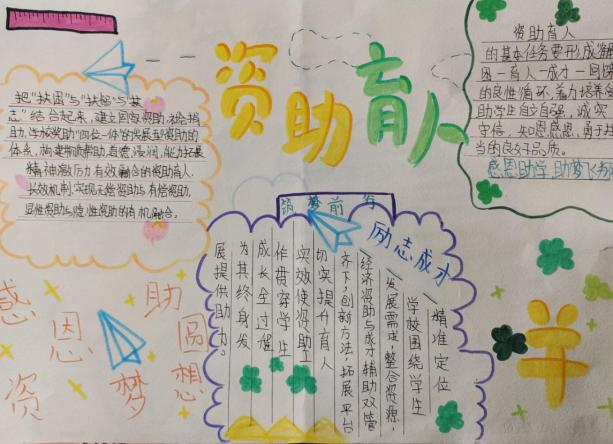 资助育人
把“扶困”与“扶智”与“扶
志”结合起来，建立国家资助、学校
助、学校资助“四位一体”的发展型资助的
体系，构建物质帮助、道德浸润、能力拓展
精神激励有效融合的资助育人
长效机制，实现无偿资助与有偿资助，
显性资助与隐性资助的有机融合。
资助育人
的基本任务要形成解
困—育人—成才—回馈
的良性循环，着力培养受
助学生自立自强，诚实
守信，知恩感恩，勇于担
当的良好品质。
感恩助学 助梦飞扬
筑梦前行
励志成才
精准定位
学校围绕学生
发展需求，整合资源，
经济资助与成才辅助双管
齐下，创新方法，拓展平台
切实提升育人
实效使资助工
作贯穿学生
成长全过程
为其终身发
展提供助力。
感恩助
圆
资梦想
学